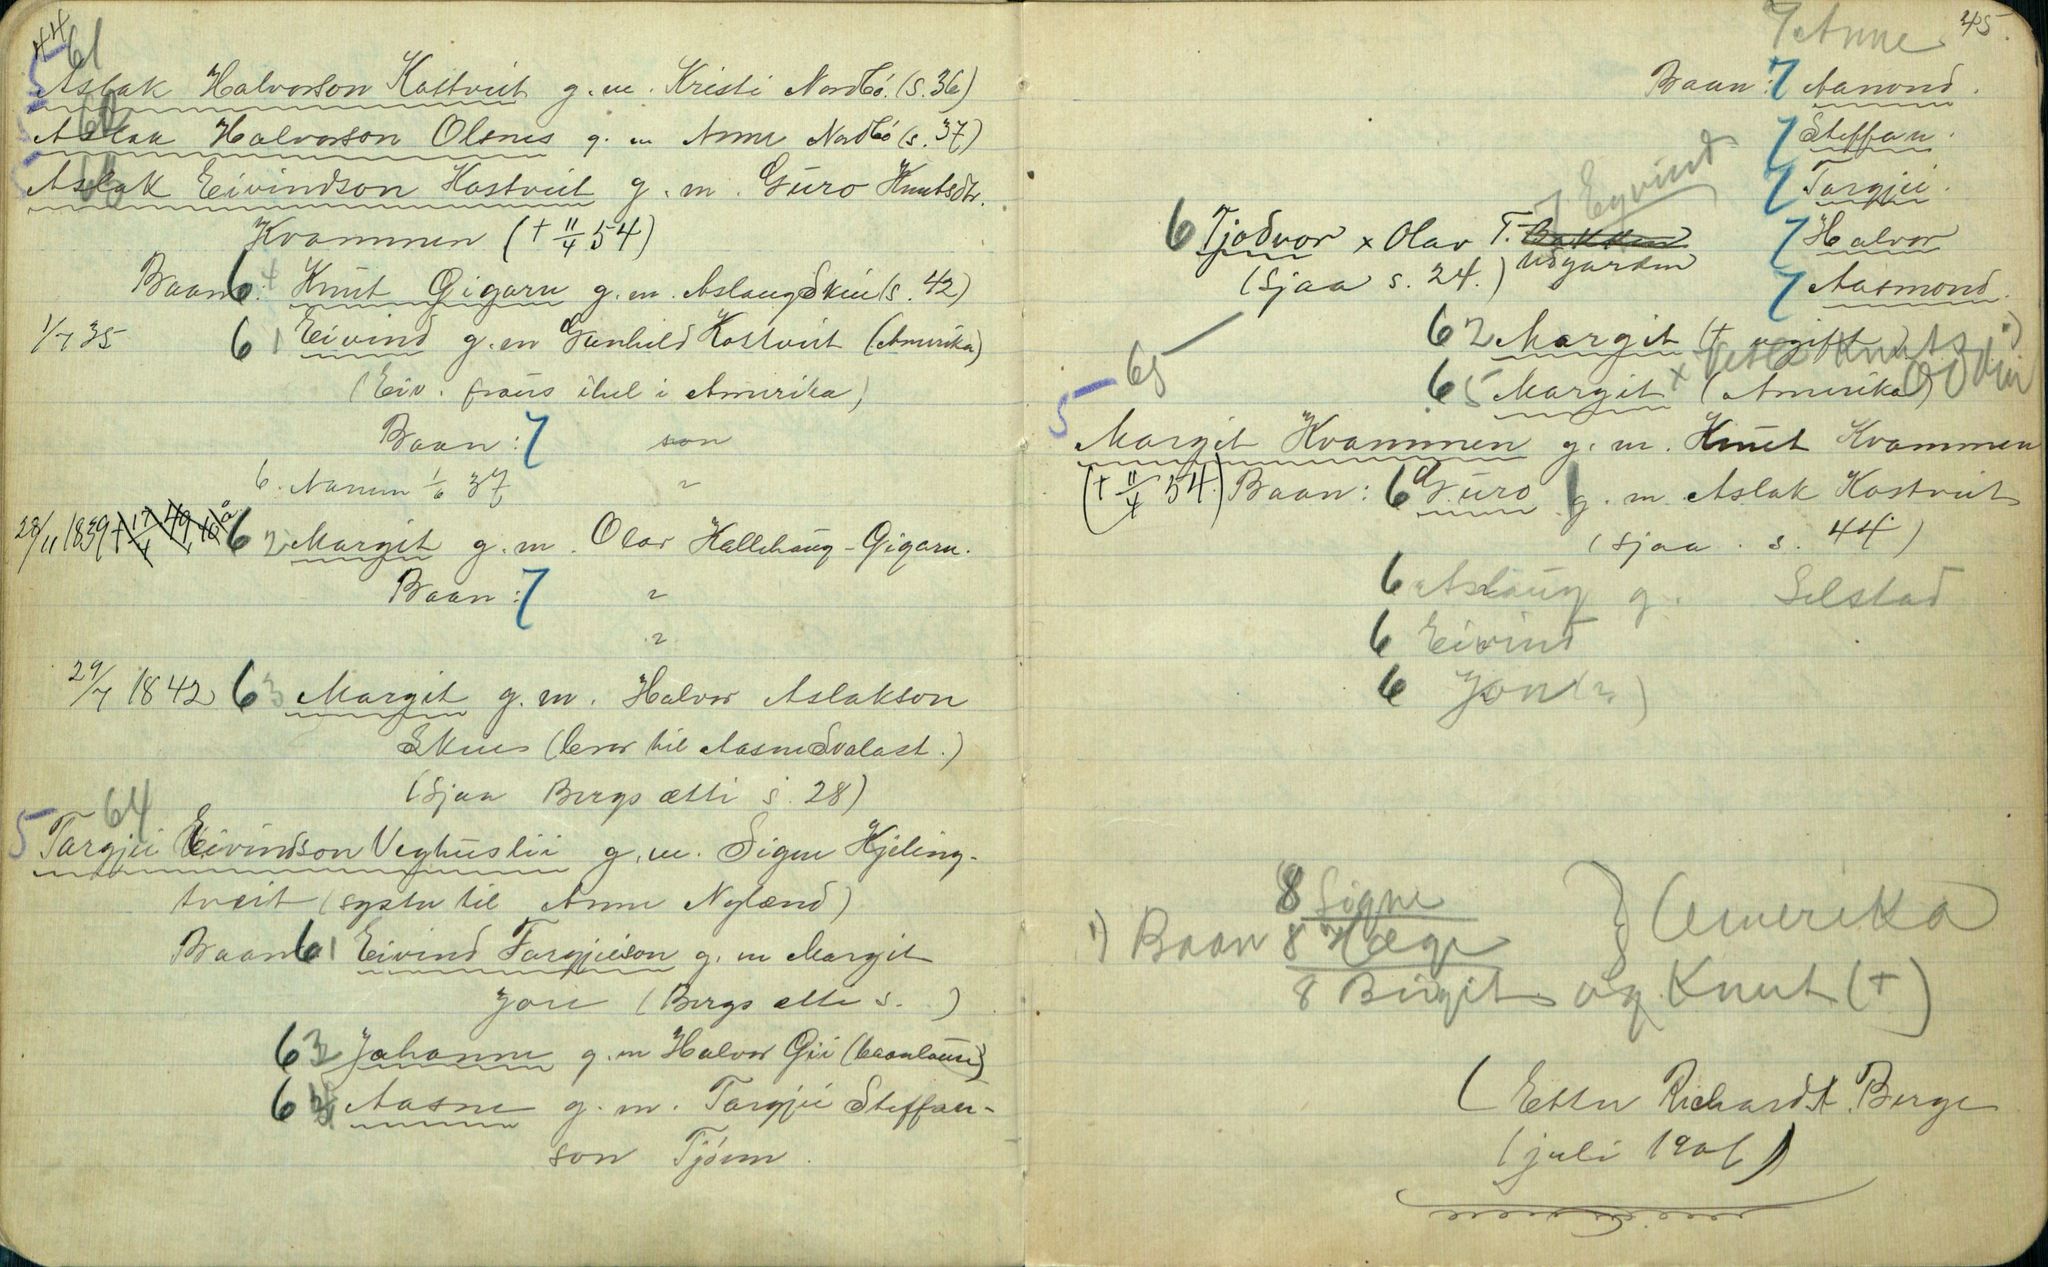 44
61
5 Aslak Halvorson Kostveit g. m. Kristi Nordbö. (s. 36)
60
Aslak Halvorson Olsnes g. m Anne Nordbö (s. 37)
Aslak Eivindson Kostveit g. m. Guro Knutsdtr.
Kvammen († 11/4 54)
Baan: 6 Knut Gigarn g. m. Aslaug Skui (s. 42)
1/7 35 6 1 Eivind g. m Gunhild Kostveit (Amerika)
(Eiv. fraus ihel i Amerika)
Baan: 7 son
6. Navnn 1/6 37 "
28/11 1839 † 17/4 49, 10 a 6 2 Margit g. m. Olav Kallehaug-Gigarn.
Baan: 7 "
"
29/7 1842 6 3 Margit g. m. Halvor Aslakson
Skues (bror til Aasne Svalast.)
(Sjaa Bergs ætti s. 28)
64
5 Targjei Eivindson Veghuslii g. m. Signe Kjeling-
tveit (syster til Anne Nyland)
Baan 6 1 Eivind Targjeison g. m Margit
Jore (Bergs ætti s. )
6 3 Johanne g. m Halvor Gii (baanlause)
6 4 Aasne g. m. Targjei Steffan-
son Tjönn.
45.
7 Anne
Baan: 7 Aanond.
7 Steffan.
7 Targjei.
7 Eyvind
6 Tjodvor x Olav T. Bakken
Utigarden
7 Halvor
(Sjaa s. 24.)
7 Aasmond.
6 2 Margit († ugift)
65
6 5 Margit (Amerika)
x Vetle Knuts. 1)
5 Margit Kvammen g. m. Knut Kvammen
(† 11/4 54.) Baan: 6 Guro g. m. Aslak Kostveit
(sjaa s. 44)
6 Aslaug g. Selstad
6 Eivind
6 Jon (?)
1) Baan 8 Signe
8 Hæge } Amerika
8 Birgit og Knut (†)
(Etter Richardt Berge
(juli 1901)